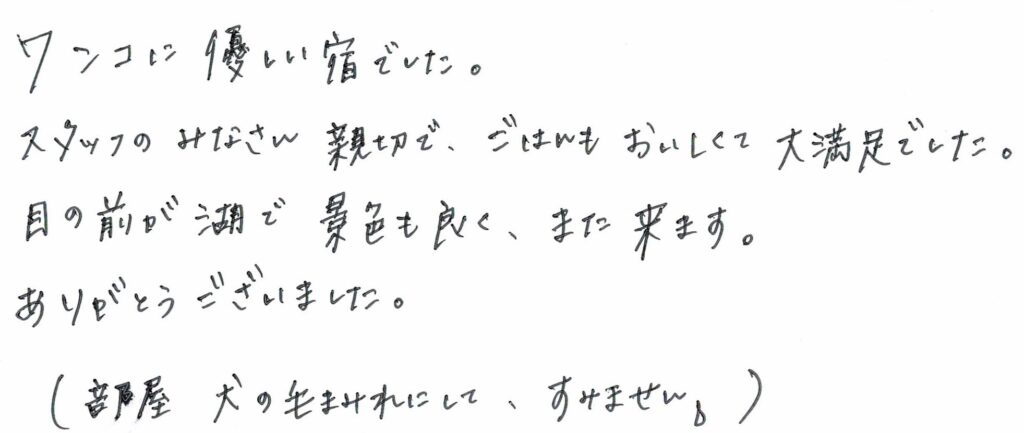 ワンコに優しい宿でした。
スタッフのみなさん親切で、ごはんもおいしくて大満足でした。
目の前が湖で景色も良く、また来ます。
ありがとうございました。
(部屋 犬の毛まみれにして、すみません。)